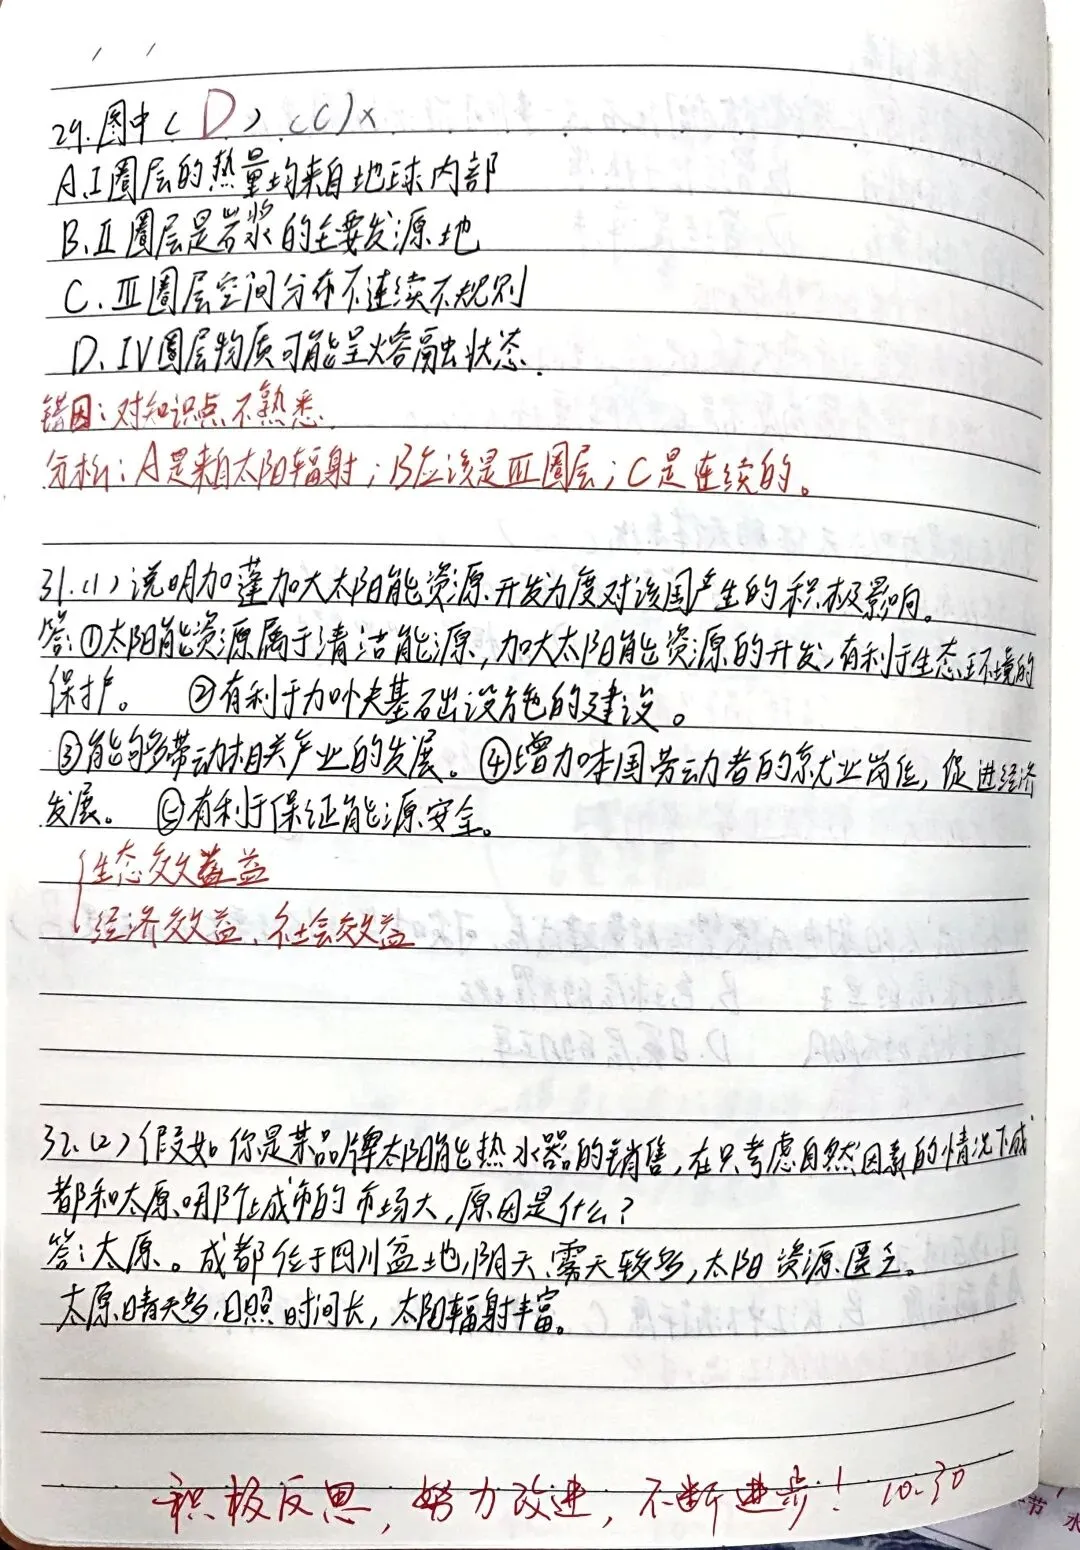 29.图中( D )(C)×
A.I圈层的热量均来自地球内部
B.II圈层是岩浆的主要发源地
C.III圈层空间分布不连续不规则
D.IV圈层物质可能呈熔融状态.
错因:对知识点不熟悉.
分析:A是来自太阳辐射;B应该是III圈层;C是连续的。
31.(1)说明加蓬加大太阳能资源开发力度对该国产生的积极影响。
答:①太阳能资源属于清洁能源,加大太阳能资源的开发,有利于生态环境的
保护。 ②有利于加快基础设施的建设。
③能够带动相关产业的发展。④增加本国劳动者的就业岗位,促进经济
发展。 ⑤有利于保证能源安全。
生态效益
经济效益、社会效益
32.(2)假如你是某品牌太阳能热水器的销售,在只考虑自然因素的情况下成
都和太原哪个城市的市场大,原因是什么?
答:太原。成都位于四川盆地,阴天、雾天较多,太阳资源匮乏。
太原晴天多,日照时间长,太阳辐射丰富。
积极反思,努力改进,不断进步! 10.30
节
水